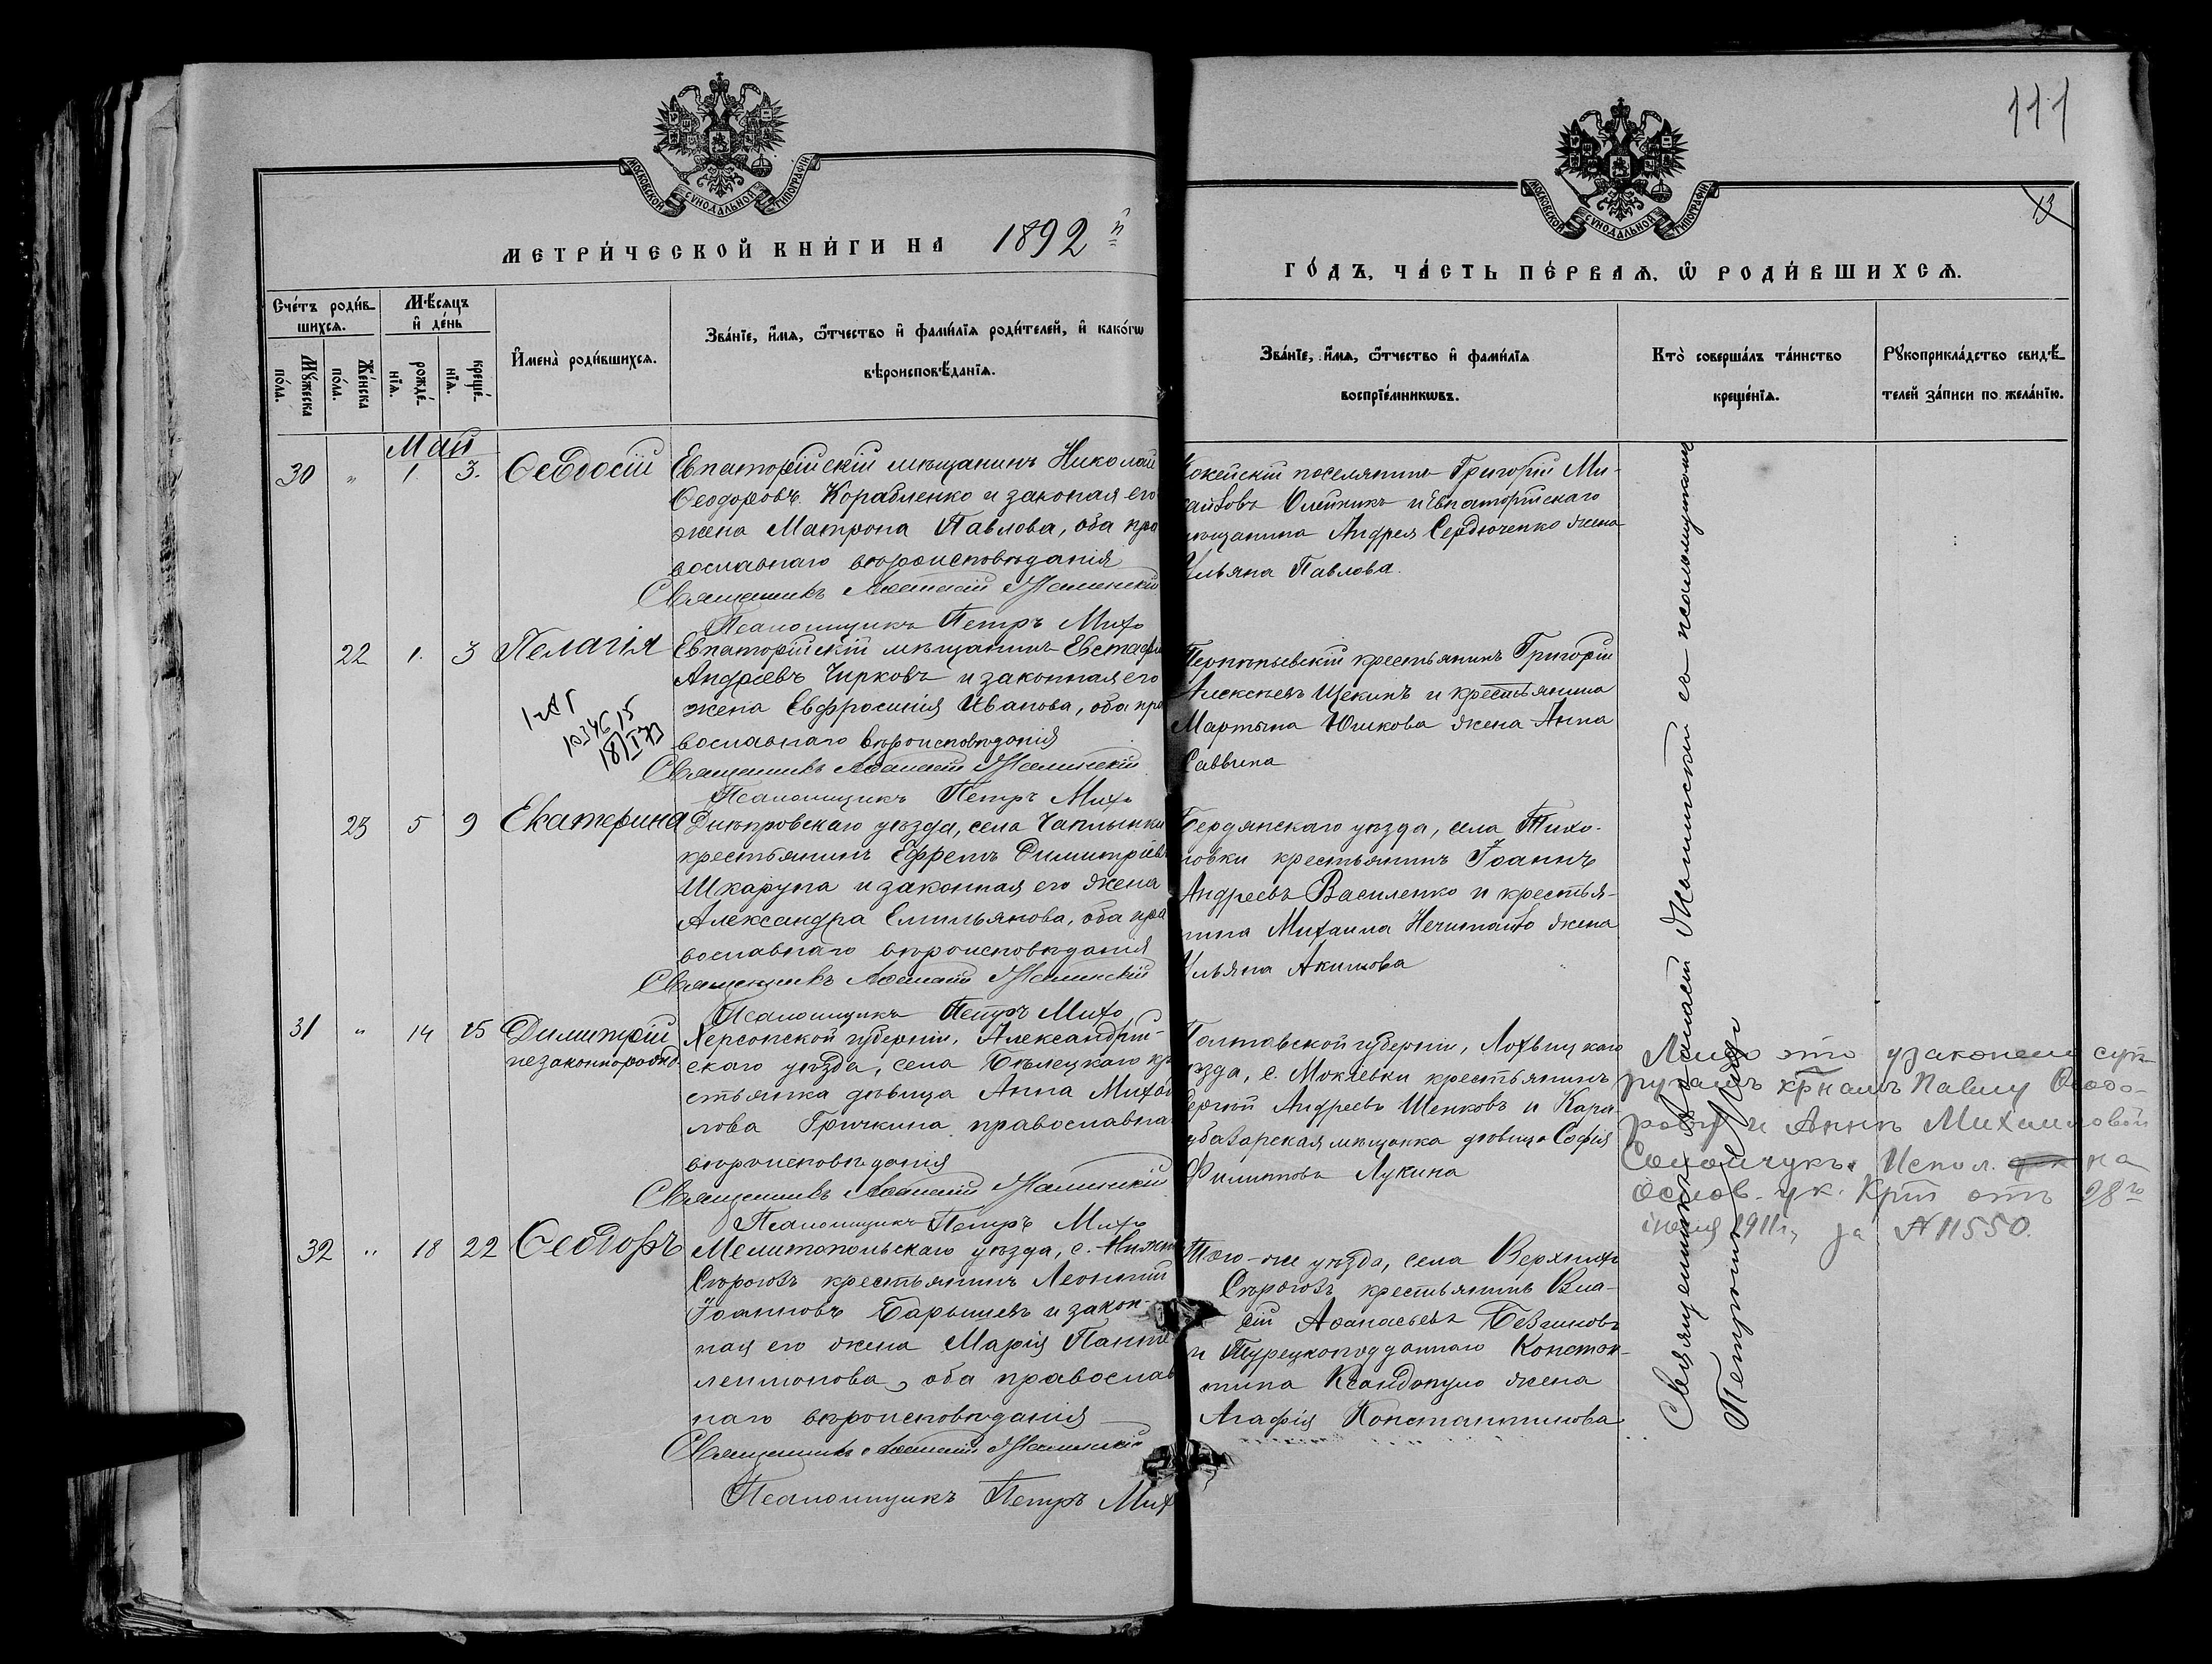 111
13
МОСКОВСКОЙ СУНОДАЛЬНОЙ ТИПОГРАФІИ
МОСКОВСКОЙ СУНОДАЛЬНОЙ ТИПОГРАФІИ
МЕТРИ́ЧЕСКОЙ КНИ́ГИ НА 1892 й
ГО́ДЪ, ЧА́СТЬ ПЕ́РВАѦ, Ѽ РОДИ́ВШИХСѦ.
Сче́тъ роди́в-
шихсѧ.
Мꙋ́жеска по́ла.
Же́нска по́ла.
Мѣ́сѧцъ
и҆ де́нь
рожде́-
нїѧ.
креще́-
нїѧ.
И҆мена̀ роди́вшихсѧ.
Зва́нїе, и҆́мѧ, ѻ҆́тчество и҆ фами́лїѧ роди́телей, и҆ како́гѡ
вѣроисповѣ́данїѧ.
Зва́нїе, и҆́мѧ, ѻ҆́тчество и҆ фами́лїѧ
воспрїе́мникѡвъ.
Кто̀ соверша́лъ та́инство
креще́нїѧ.
Рꙋкоприкла́дство свидѣ́-
телей за́писи по жела́нїю.
Май
30 " 1. 3. Ѳеодосій
Евпаторійскій мѣщанинъ Николай
Ѳеодоровъ Корабленко и законая его
жена Матрона Павлова, оба пра
вославнаго вѣроисповѣданія
Священникъ Аѳанасій
Псаломщикъ Петръ
окейскій поселянинъ Григорій Ми-
хайловъ Олейникъ и Евпаторійскаго
мѣщанина Андрея Сердюченко жена
Ульяна Павлова.
22 1. 3 Пелагія
Евпаторійскій мѣщанинъ Евстафі
Андреевъ Чирковъ и законная его
жена Евфросинія Иванова, оба пра
вославнаго вѣроисповѣданія
Священникъ Аѳанасій
Псаломщикъ Петръ
крестьянинъ Григорій
Алексѣевъ Щекинъ и крестьянина
Мартына Юшкова жена Анна
Саввина
23 5 9 Екатерина
Днѣпровскаго уѣзда, села Чаплынки
крестьянинъ Ефремъ Димитріевъ
Шкарупа и законная его жена
Александра Емильянова, оба пра
вославнаго вѣроисповѣданія
Священникъ Аѳанасій
Псаломщикъ Петръ
Бердянскаго уѣзда, села Тихо-
новки крестьянинъ Іоаннъ
Андреевъ Василенко и крестья-
нина Михаила Нечитайло жена
Ульяна Акимова
31 " 14 15 Димитрій
незаконнорожд.
Херсонской губерніи, Александрій-
скаго уѣзда, села кре
стьянка дѣвица Анна Михай
лова Гричкина православна
вѣроисповѣданія
Священникъ Аѳанасій
Псаломщикъ Петръ
Полтавской губерніи, Лохвицкаго
уѣзда, с. Мокіевки крестьянинъ
Сергій Андреевъ Шенковъ и Кара-
субазарская мѣщанка дѣвица Софія
Филиппова Лукина
Лицо это узаконено суп-
ругамъ крнамъ Павлу Ѳеодо-
рову и Аннѣ Михаиловой
Сопомчукъ. Испол. на
основ. ук. от 28го
1911 г. за №11550.
32 " 18 22 Ѳеодоръ
Мелитопольскаго уѣзда, с. Нижни
Сѣрогозъ крестьянинъ Леонтій
Іоанновъ Барышевъ и закон-
ная его жена Марія Панте
леимонова, оба православ
наго вѣроисповѣданія
Священникъ Аѳанасій
Псаломщикъ Петръ
Того-же уѣзда, села Верхнихъ
Сѣрогозъ крестьянинъ Вла-
сій Аѳанасьевъ
и Турецкоподданнаго Констан-
тина Ксандопуло жена
Агафія Константинова
Священникъ Аѳанасій съ псаломщикомъ
Петромъ